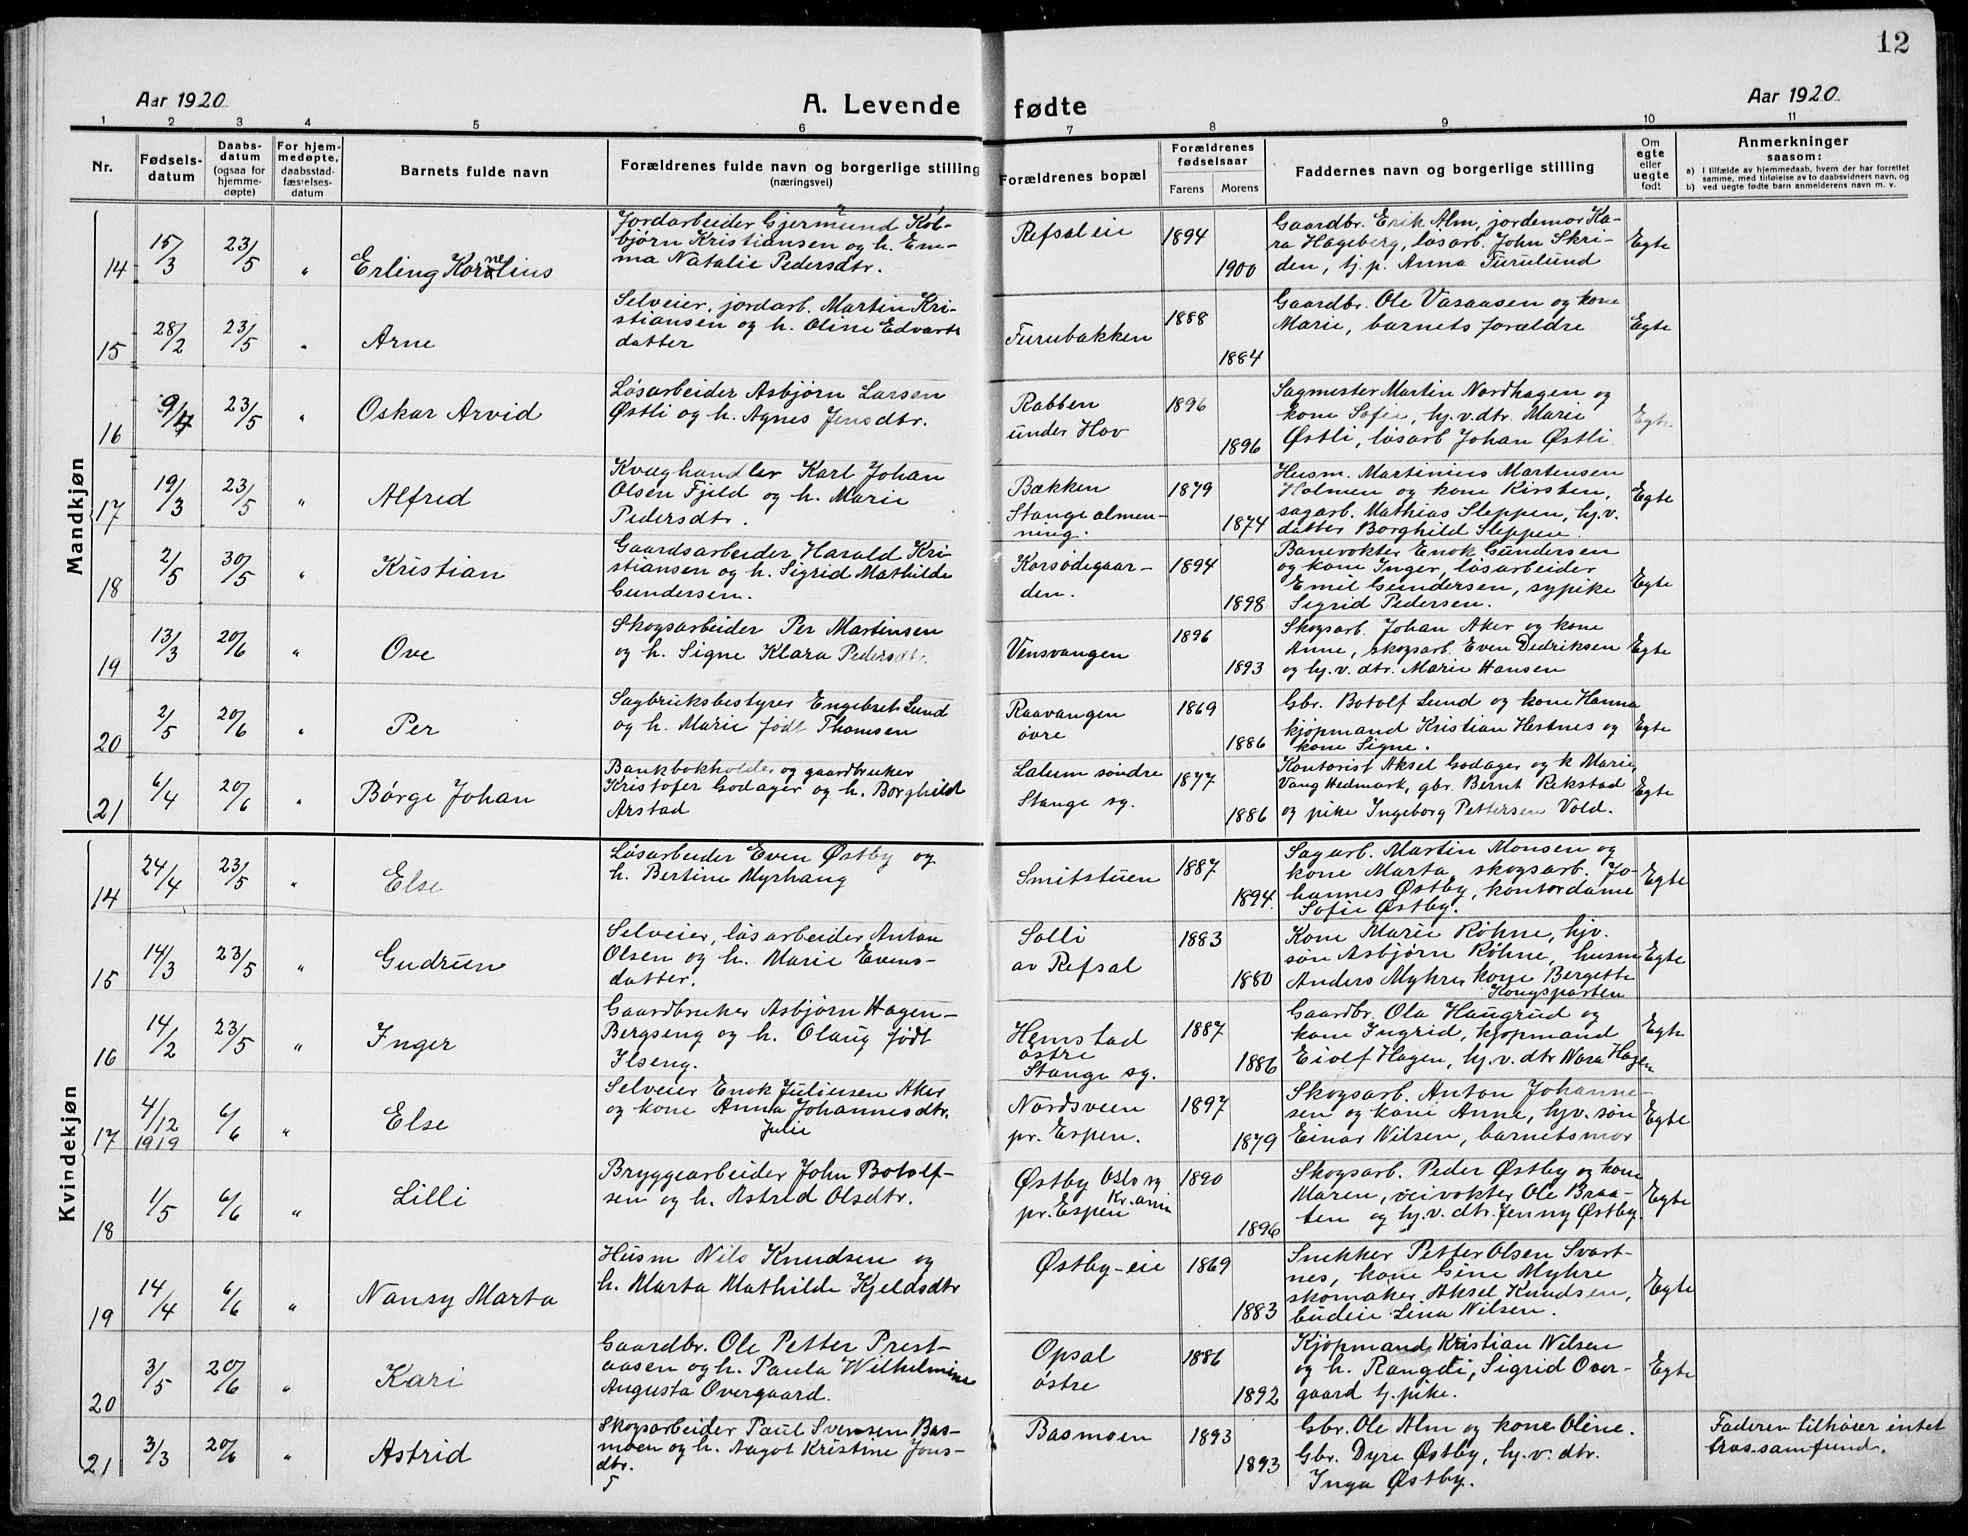 12
Aar 1920
A. Levende fødte
Aar 1920
1 2 3 4 5 6 7 8 9 10 11
Nr.
Fødsels-
datum
Daabs-
datum
(ogsaa for
hjemme-
døpte)
For hjem-
medøpte,
daabsstad-
fæstelses-
datum
Barnets fulde navn
Forældrenes fulde navn og borgerlige stilling
(næringsvei)
Forældrenes bopæl
Forældrenes
fødselsaar
Farens Morens
Faddernes navn og borgerlige stilling
Om
egte
eller
uegte
født
Anmerkninger
saasom:
a) I tilfælde av hjemmedaab, hvem der har forrettet
samme, med tilføielse av to daabsvidners navn, og
b) ved uegte fødte barn anmelderens navn m. v.
Mandkjøn
14 15/3 23/5 " Erling Kornelius
Jordarbeider Gjermund Kol-
bjørn Kristiansen og h. Em-
ma Natalie Pedersdtr.
Refsaleie
1894 1900
Gaardbr. Erik Alm, jordemor Ka-
ra Hageberg, løsarb. John Skri-
den, tj. p. Anna Furulund
Egte
15 28/2 23/5 " Arne
Selveier, jordarb. Martin Kri-
stiansen og h. Oline Edvards
datter
Furubakken
1888 1884
Gaardbr. Ole Vasaasen og kone
Marie, barnets forældre
Egte
16 9/4 23/5 " Oskar Arvid
Løsarbeider Asbjørn Larsen
Østli og h. Agnes Jensdtr.
Rabben
under Hov
1896 1896
Sagmester Martin Nordhagen og
kone Sofie, hj.v.dtr. Marie
Østli, løsarb Johan Østli
Egte
17 19/3 23/5 " Alfred
Kvæghandler Karl Johan
Olsen Fjeld og h. Marie
Pedersdtr.
Bækken
Stange almen-
ning.
1879 1874
Husm. Martinius Martensen
Holmen og kone Kirsten,
sagarb. Mathias Sleppen, hj.v.
datter Borghild Sleppen.
Egte
18 2/5 30/5 " Kristian
Gaardsarbeider Harald Kri-
stiansen og h. Sigrid Mathilde
Gundersen.
Korsødegaar-
den.
1894 1898
Banevokter Enok Gundersen
og kone Inger, løsarbeider
Emil Gundersen, sypike
Sigrid Pedersen.
Egte
19 13/3 20/6 " Ove
Skogsarbeider Per Martinsen
og h. Signe Klara Pedersdtr.
Vensvangen
1896 1893
Skogsarb. Johan Aker og kone
Anne, skogsarb. Even Dedriksen
og hj.v. dtr. Marie Hansen
Egte
20 2/5 20/6 " Per
Sagbruksbestyrer Engebret Lund
og h. Marie født Thomsen
Raavangen
øvre
1869 1886
Gbr. Botolf Lund og kone Hanna
kjøpmand Kristian Hestnes og
kone Signe.
Egte
21 6/4 20/6 " Børge Johan
Bankbokholder og gaardbruker
Kristofer Godager og h. Borghild
Arstad
Lalum søndre
Stange sg.
1877 1886
Kontorist Aksel Godager og k Marie,
Vang Hedmark, gbr. Bernt Rekstad
og pike Ingeborg Pettersen Vold.
Egte
Kvindekjøn
14 24/4 23/5 " Else
Løsarbeider Even Østby og
h. Bertine Myrhaug
Smitstuen
1887 1894.
Sagarb. Martin Monsen og
kone Marta, skogsarb. Jo-
hannes Østby, kontordame
Sofie Østby.
Egte
15 14/3 23/5 " Gudrun
Selveier, løsarbeider Anton
Olsen og h. Marie Evens-
datter.
Solli
av Refsal
1883 1880
Kone Marie Røhne, hjv.
søn Asbjørn Røhne, husm
Anders Myhrer kone Bergette
Kongsparten
Egte
16 14/2 23/5 " Inger
Gaardbruker Asbjørn Hagen-
Bergseng og h. Olaug født
Ilseng.
Hemstad
østre
Stange sg.
1887 1886
Gaardbr. Ola Haugrud og
kone Ingrid, kjøpmand
Eiolf Hagen, hj.v. dtr Nora Hagen
Egte
17 4/12 1919 6/6 " Else
Selveier Enok Juliussen Aker
og kone Anna Johannesdtr.
Julie
Nordsveen
pr. Espen.
1897 1879
Skogsarb. Anton Johanne-
sen og kone Anne, hjv. søn
Einar Nilsen, barnets mor
Egte
18 1/5 6/6 " Lilli
Bryggearbeider John Botolf-
sen og h. Astrid Olsdtr.
Østby Oslo sg
pr. Espen Kr.ania
1890 1896
Skogsarb. Peder Østby og kone
Maren, veivokter Ole Braa-
ten og hj.v. dtr. Jenny Østby.
Egte
19 14/4 6/6 " Nansy Marta
Husm Nils Knudsen og
h. Marta Mathilde Kjeldsdtr
Østby-eie
1869 1883
Snekker Petter Olsen Svart-
nes, kone Gine Myhre
skomaker Aksel Knudsen,
budeie Lina Nilsen.
Egte
20 3/5 20/6 " Kari
Gaardbr. Ole Petter Prest-
aasen og h. Paula Wilhelmine
Augusta Overgaard.
Opsal
østre
1886 1892
Kjøpmand Kristian Nilsen
og h. Rangdi, Sigrid Over-
gaard tj. pike.
Egte
21 3/3 20/6 " Astrid
Skogsarbeider Paul Svensen Bas-
moen og h. Nagot Kristine Jons-
dtr.
Basmoen
1893 1893
Gbr. Ole Alm og kone Oline.
Gbr. Dyre Østby, hj.v. dtr.
Inga Østby.
Faderen tilhører intet
trossamfund.